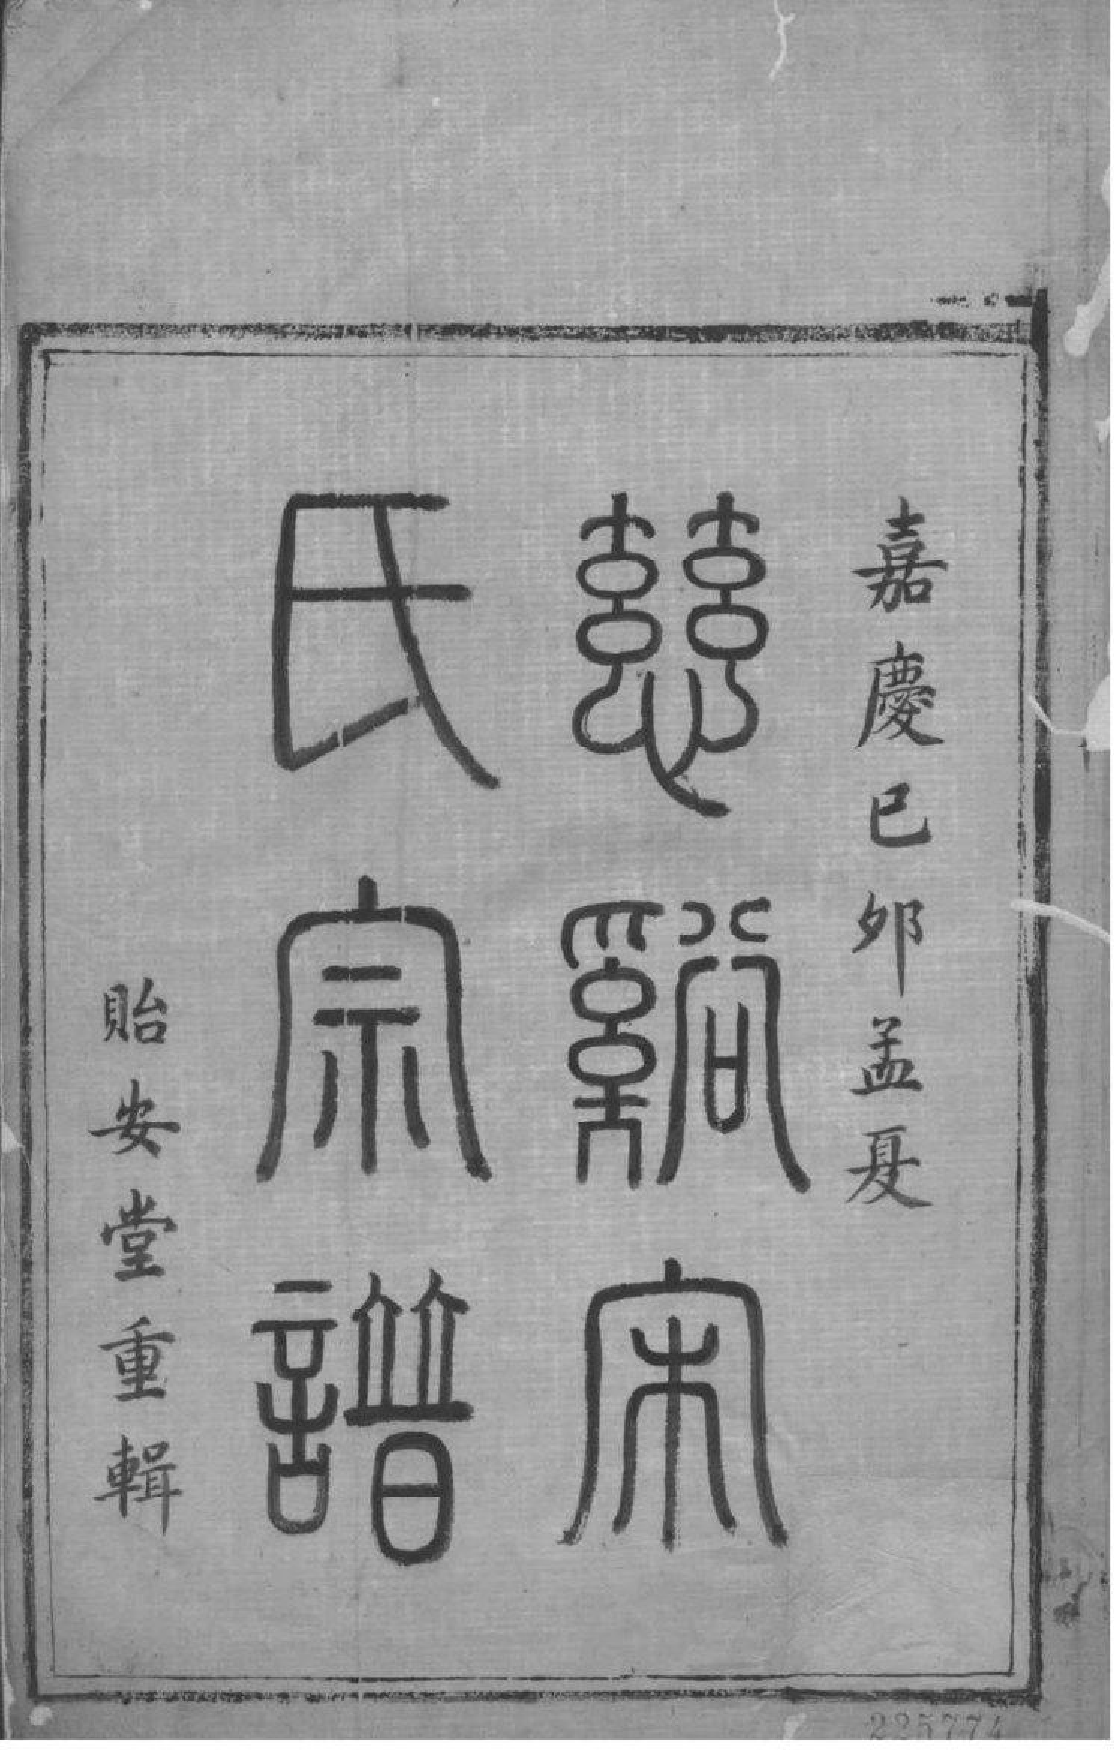 嘉慶已夘孟夏
慈谿宋
氏宗譜
貽安堂重輯
225774